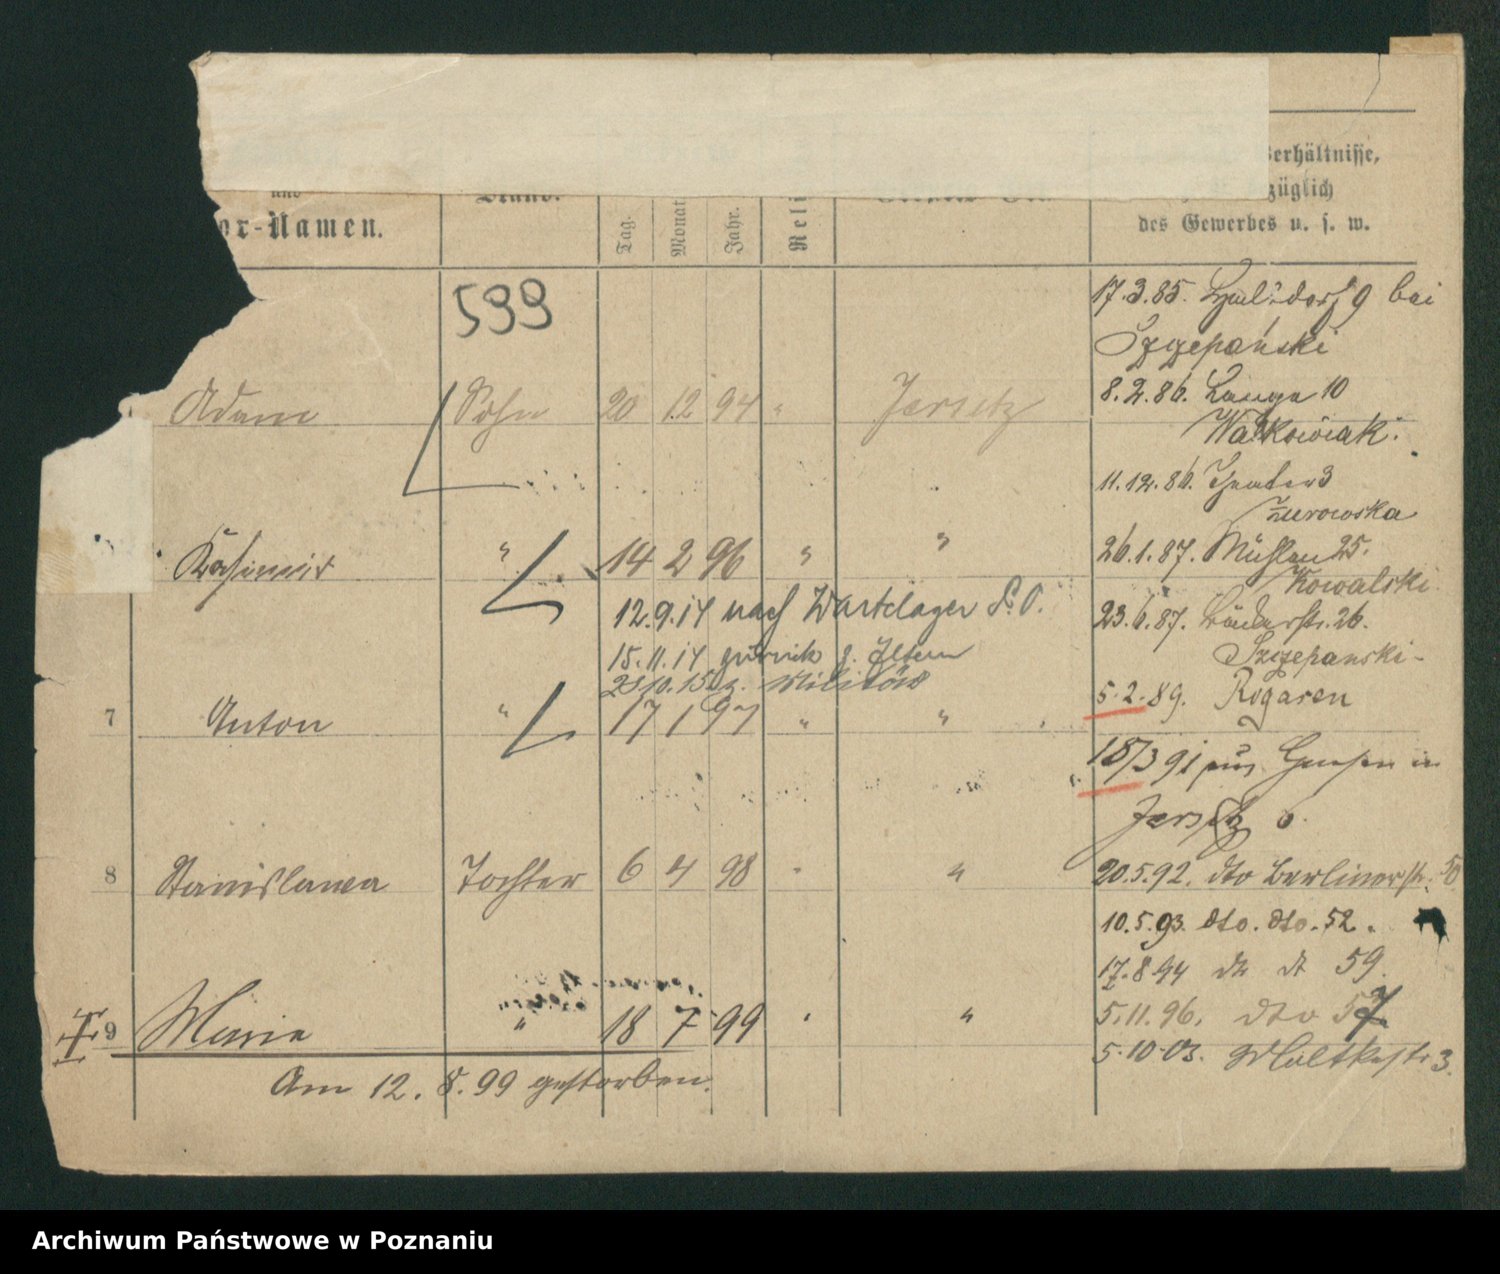 erhältnisse,
und
züglich
or-Namen.
Stand.
Tag.
Monat
Jahr.
Reli
des Gewerbes u. s. w.
599
17.3.85. 9 bei
Szczepański
Adam Sohn 20 12 94 " Jersitz
8.2.86. Lange 10
Walkowiak.
11.12.86. Theater 3
Żurowska
Kasimir " 14 2 96 " "
26.1.87. Mühlen 25.
Kowalski.
12.9.14 nach Wartelager
23.6.87. Bäckerstr. 26.
15.11.14 zurück z. Eltern
Szczepanski-
z. Militär
5.2.89. Rogasen
7 Anton " 17 1 97 " "
18/3 91 aus Gnesen in
Jersitz
8 Stanislawa Tochter 6 4 98 " "
20.5.92. dto Berlinerstr. 50
10.5.93. dto. dto. 52.
17.8.94 dt dt 59.
9 Maria " 18 7 99 " "
5.11.96. dto 57
5.10.03. Moltkestr 3.
Am 12. 8. 99 gestorben.
Archiwum Państwowe w Poznaniu